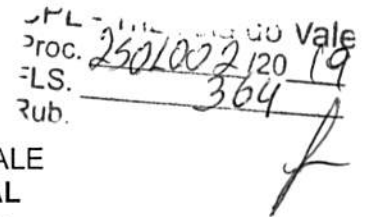 do Vale
Proc. 2501002/2019
FLS. 364
Rub.
ALE
AL